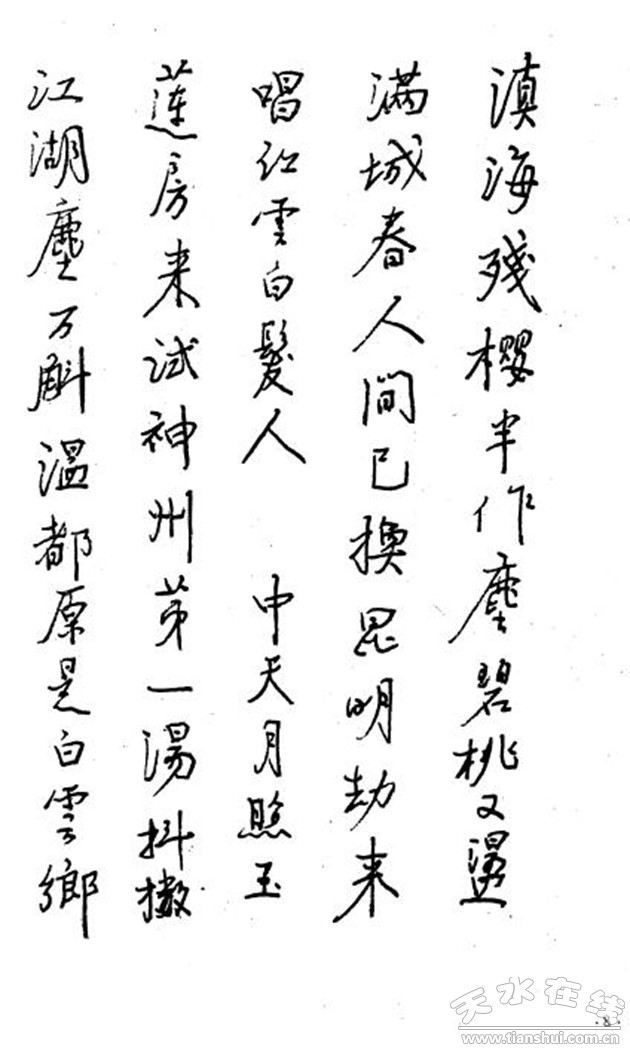 滇海残樱半作塵碧桃又邊
满城春人間已换昆明劫来
唱红雲白髮人 中天月照玉
蓮房来试神州苐一湯抖擞
江湖塵万斛温都原是白雲鄉
天水在线
www.tianshui.com.cn
·8·